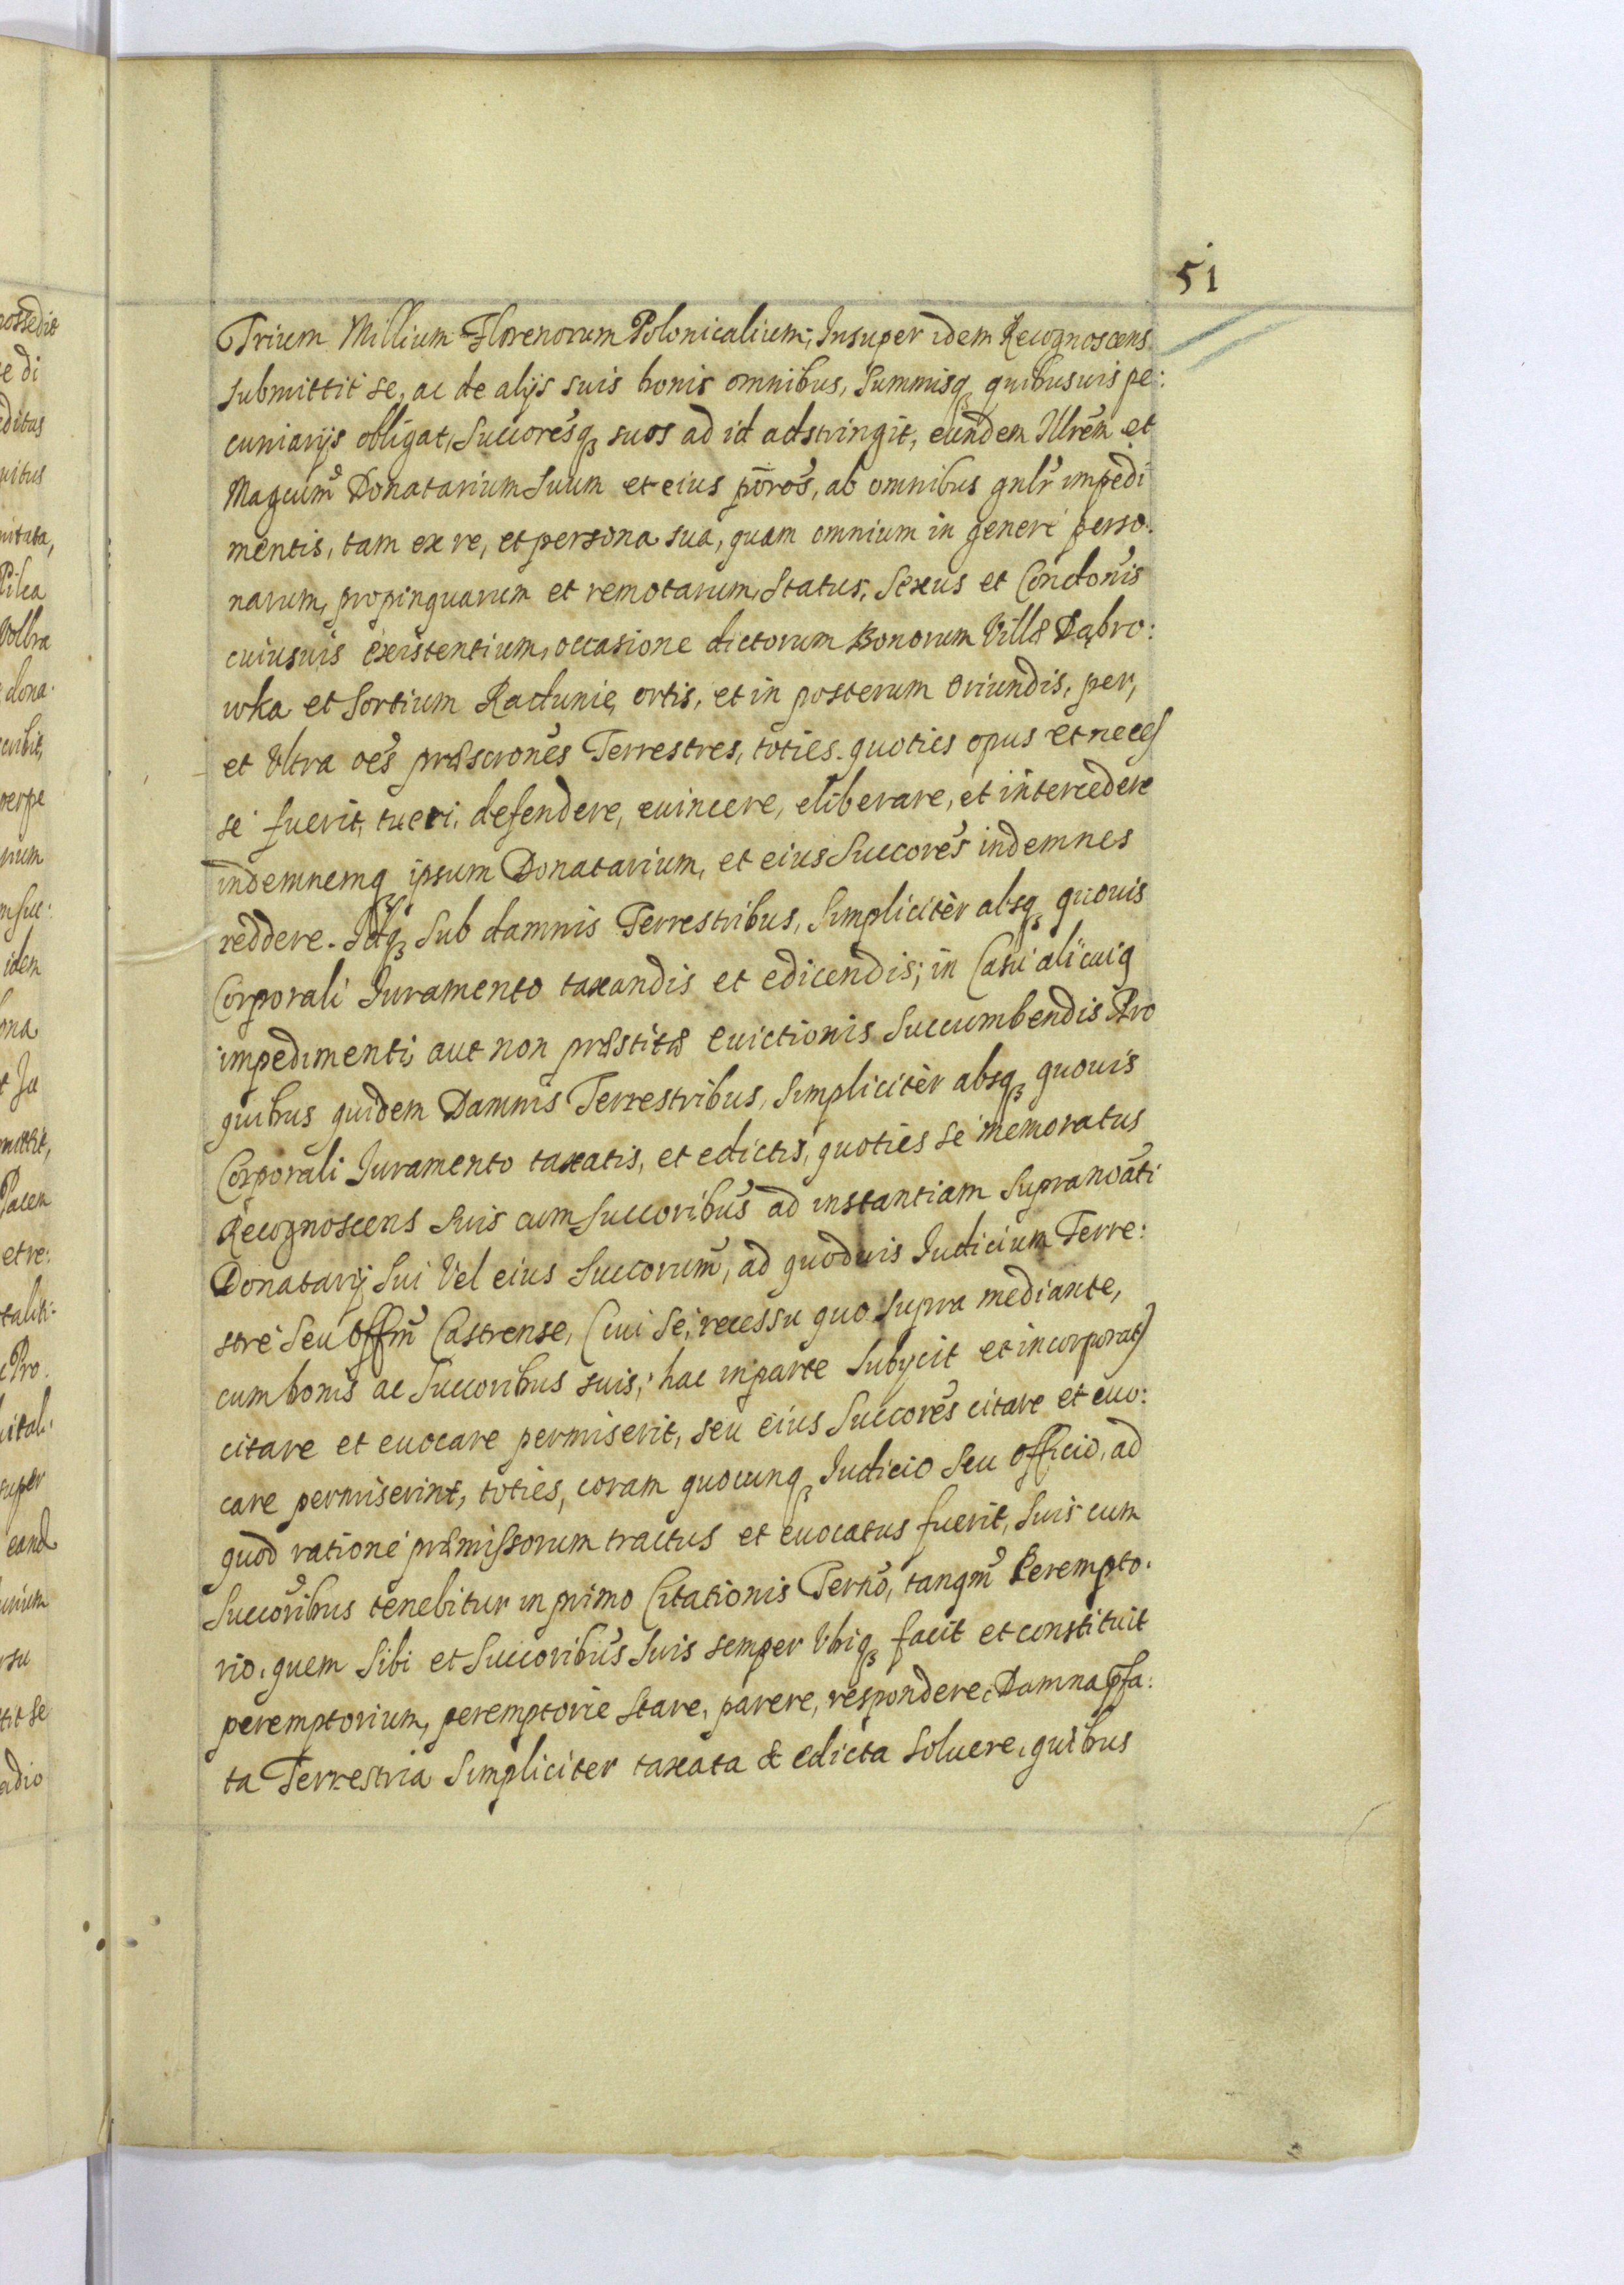 51
Trium Millium Florenorum Polonicalium; Insuper idem Recognoscens
submittit se, ac de alijs suis bonis omnibus, Summisqꝫ quibusuis pe:
cuniarijs obligat, Succoresqꝫ suos ad id adstringit, eundem Illrem et
Magcum Donatarium Suum et eius pōros, ab omnibus gnlr impedi
mentis, tam ex re, et persona sua, quam omnium in genere perso.
narum, propinquarum et remotarum, Status, Sexus et Condonis
cuiusuis existentium, occasione dictorum Bonorum Villæ Dąbro:
wka et Sortium Radunie, ortis, et in posterum Oriundis, per,
et Vltra oēs præscrones Terrestres, toties quoties opus et neces
se fuerit, tueri, defendere, euincere, eliberare, et intercedere
indemnemq ipsum Donatarium, et eius Succores indemnes
reddere. Idqꝫ Sub damnis Terrestribus, Simpliciter absqꝫ quouis
Corporali Iuramento taxandis et edicendis; in Casu alicuiq
impedimenti aut non præstitæ euictionis Succumbendis Pro
quibus quidem Damnis Terrestribus, Simpliciter absqꝫ quouis
Corporali Iuramento taxatis, et edictis, quoties se memoratus
Recognoscens Suis cum Succoribus ad instantiam Supranoāti
Donatarij Sui Vel eius Succorum, ad quoduis Iudicium Terre:
stre Seu Offm Castrense, (cui Se, recessu quo supra mediante,
cum bonis ac Succoribus suis, hac in parte Subijcit et incorporat)
citare et euocare permiserit, seu eius Succores citare et euo:
care permiserint, toties, coram quocunqꝫ Iudicio Seu Officio, ad
quod ratione præmissorum tractus et euocatus fuerit, Suis cum
Succoribus tenebitur in primo Citationis Termō, tanqm Perempto.
rio, quem Sibi et Succoribus Suis semper Vbiqꝫ facit et constituit
peremptorium, peremptorie Stare, parere, respondere, Damna p̄fa:
ta Terrestria Simpliciter taxata & edicta Soluere, quibus